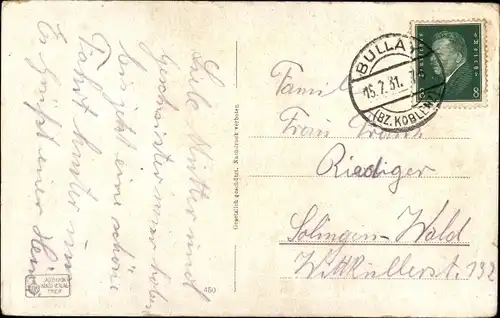 Liebe Mutter und
Geschwister wir haben
bis jetzt eine schöne
Fahrt hinter uns
Es grüßt euer Heinz
Gesetzlich geschützt. Nachdruck verboten.
450
BULLAY
15.7.31.
(BZ. KOBLENZ)
8
Familie
Frau Frank
Rüdiger
Solingen-Wald
Wittkullerst. 132